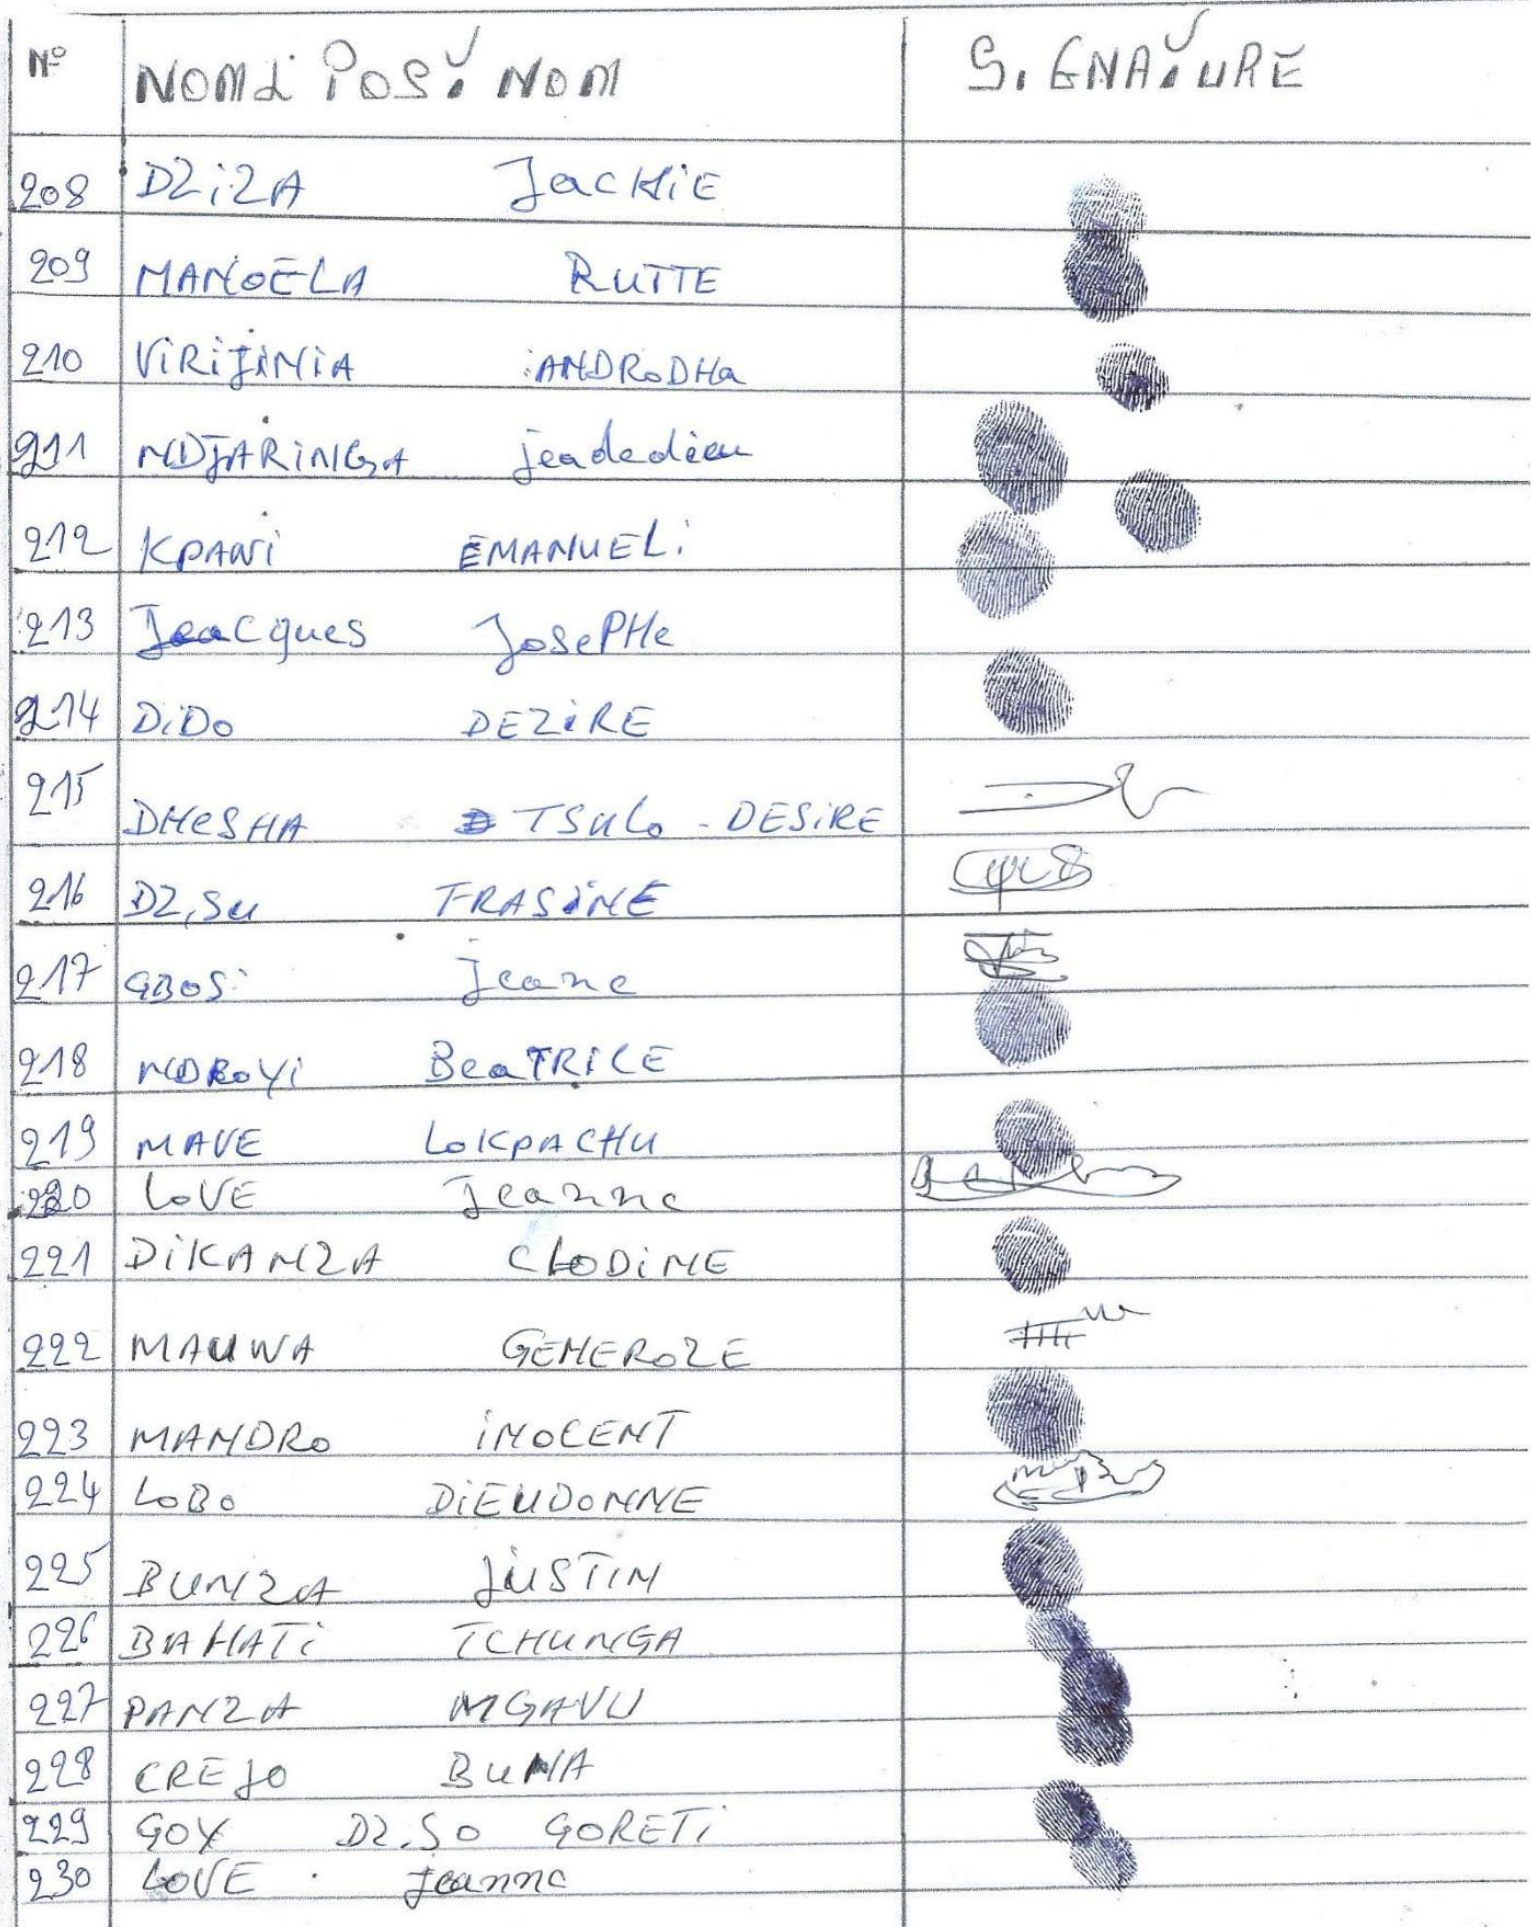 N° NOM & POSTNOM SIGNATURE
208 DZiZA JACKiE
209 MANOELA RUTTE
210 ViRiJiNiA ANDRODHa
211 NDJARiNGA jeadedieu
212 KPANi EMANUELi
213 Jeacques JosePHe
214 DiDo DEZiRE
215 DHeSHA TSULo - DESiRE
216 DZiSu FRASiNE
217 GBOSi Jeane
218 NDROYi BeaTRiCE
219 MAVE LOKPACHU
220 LoVE Jeanne
221 DiKANZA CLODiNE
222 MAUWA GENEROZE
223 MANDRo iNOCENT
224 LoBo DiEUDONNE
225 BUNZA JUSTIN
226 BAHATi TCHUNGA
227 PANZA NGAVU
228 CREJO BUNA
229 GOY DZiSO GORETi
230 LOVE Jeanne